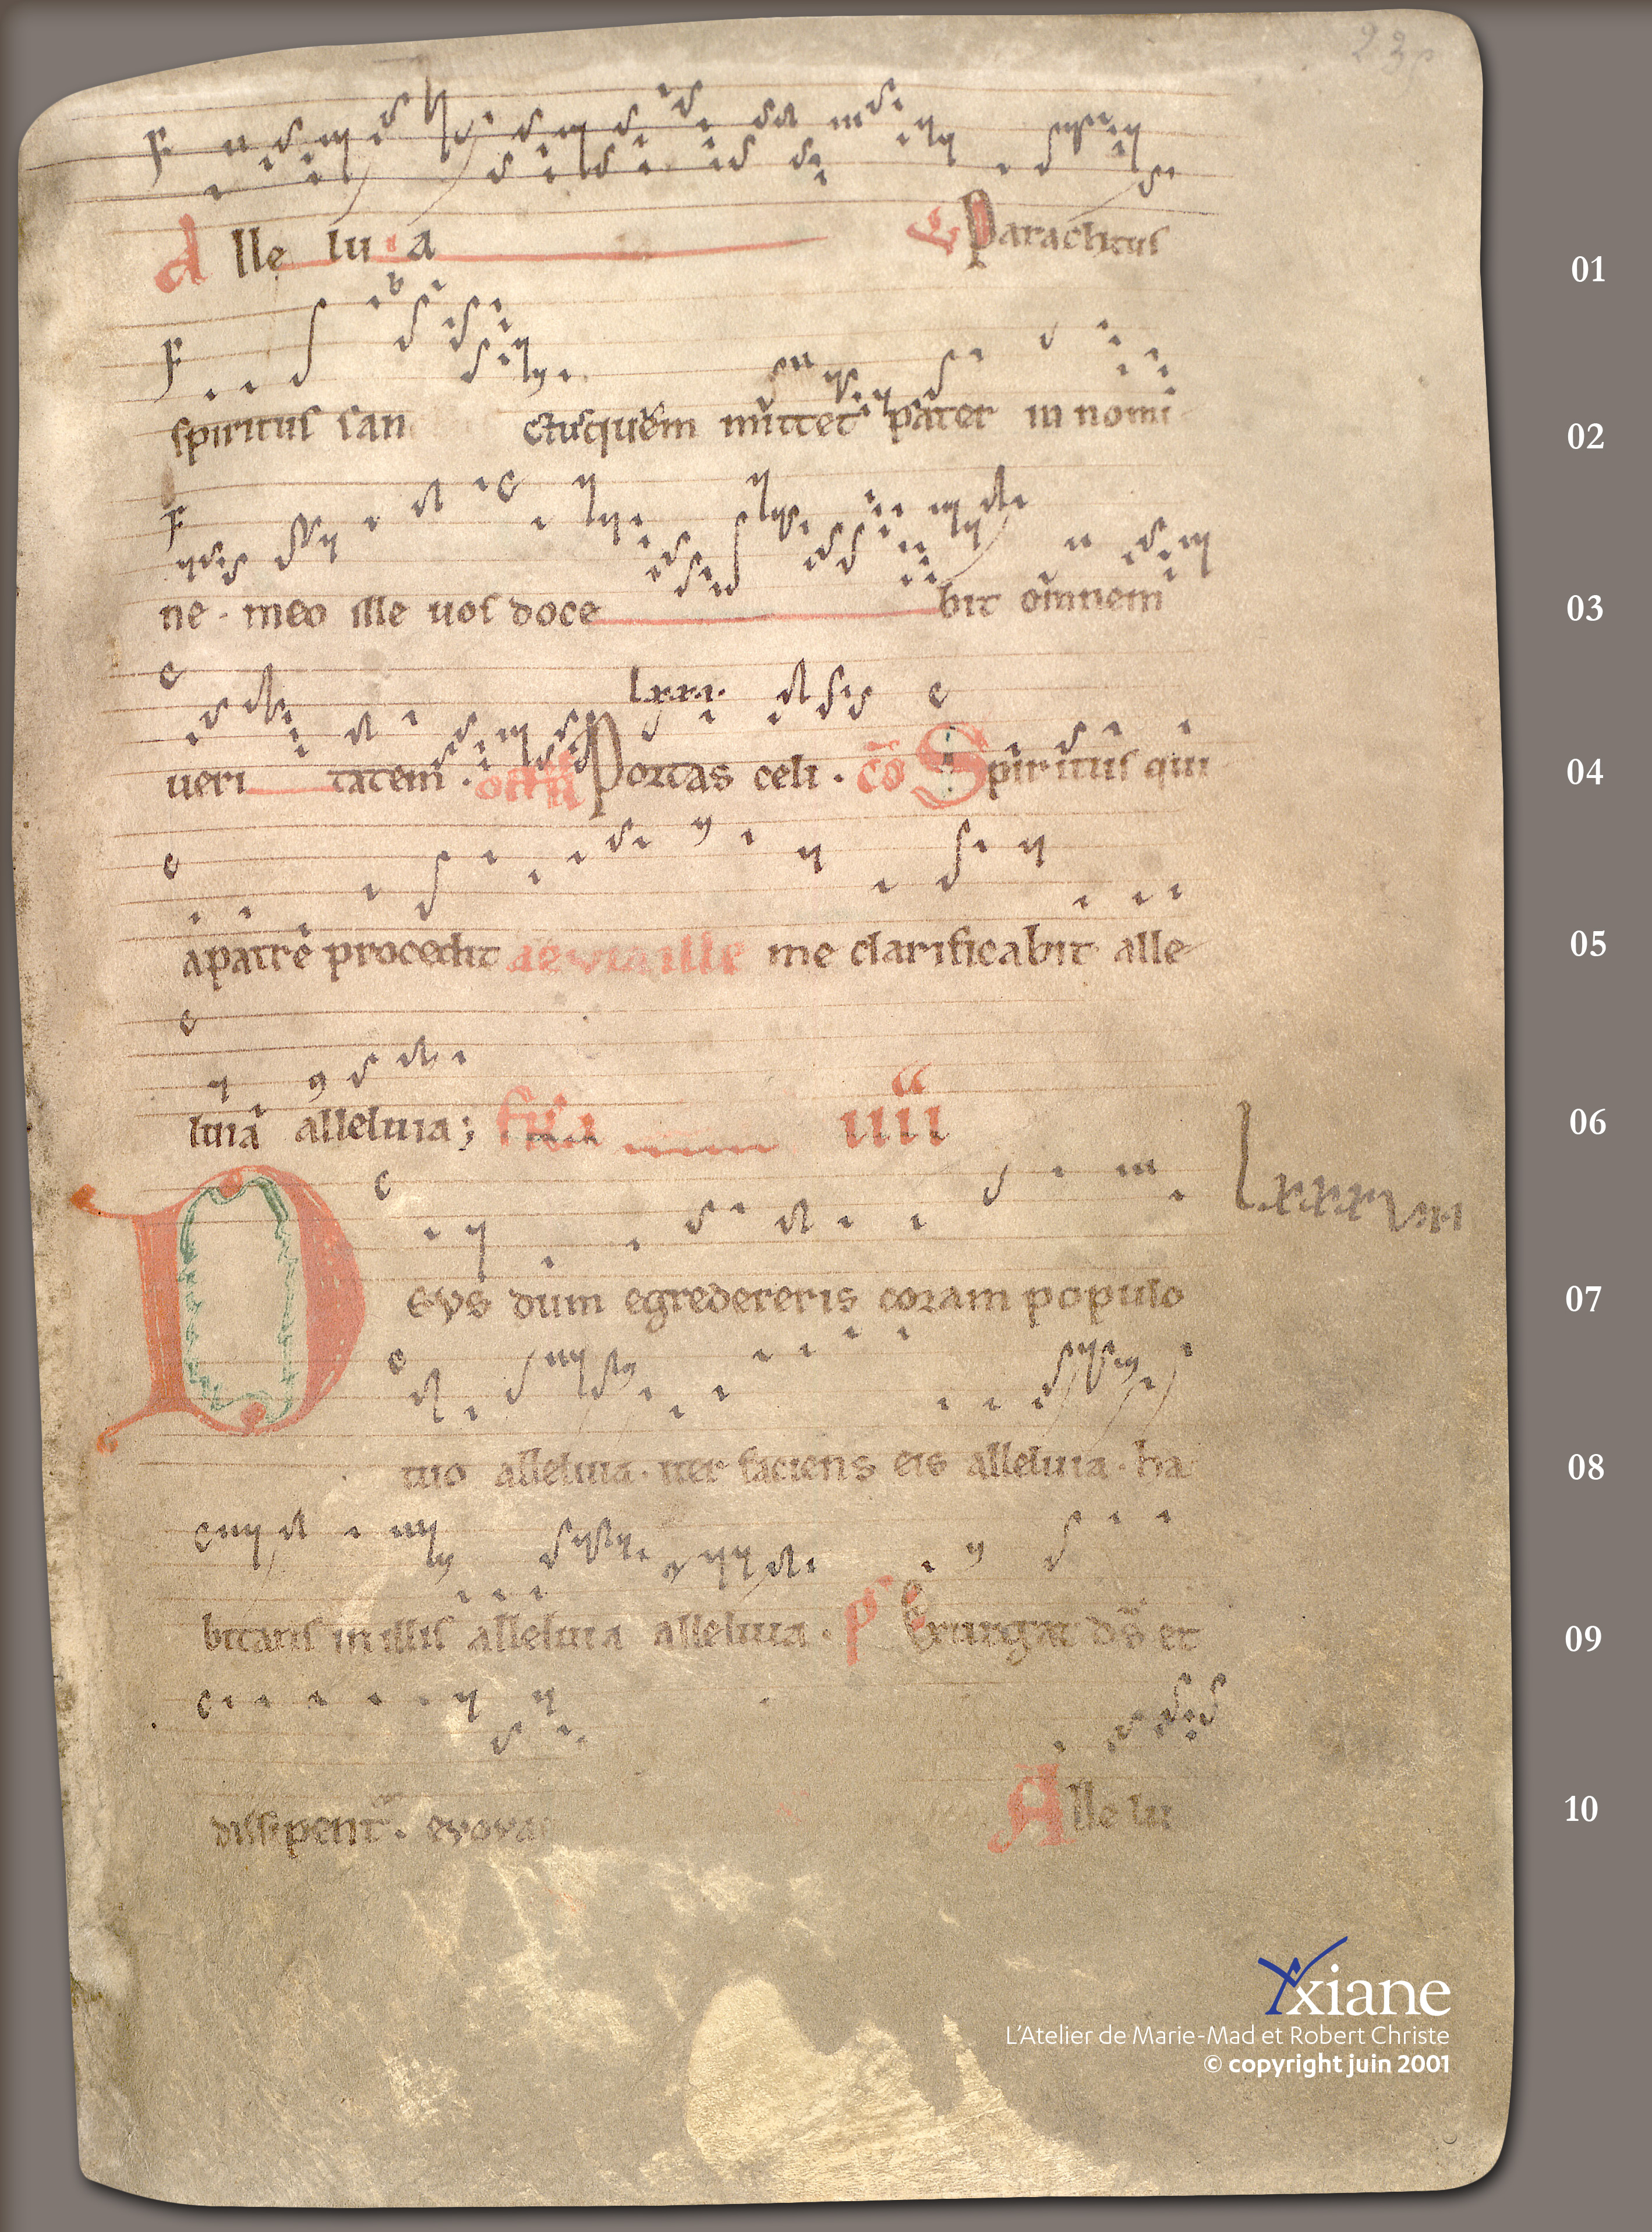 23
F
Alle lu ia Paraclitus 01
F b
spiritus san ctus quem mittet pater in nomi 02
F c
ne · meo ille uos doce bit omnem 03
c Lxxi· c
ueri tatem · Portas celi · cō Spiritus qui 04
c
apatrē procedit me clarificabit alle 05
c
luia alleluia; iiii 06
c Lxxxviii
Deus dum egredereris coram populo 07
c
tuo alleluia · iter faciens eis alleluia · ha 08
c
bitans in illis alleluia alleluia · p̄ Exurgat dš et 09
c
dissipent · evovae Alle lu 10
Yxiane
L'Atelier de Marie-Mad et Robert Christe
© copyright juin 2001